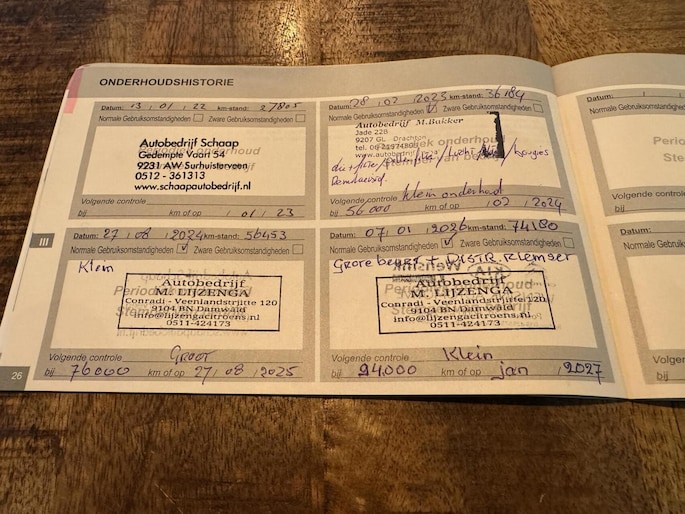 ONDERHOUDSHISTORIE
Datum: 13 / 01 / 22 km-stand: 27805
Normale Gebruiksomstandigheden Zware Gebruiksomstandigheden
Autobedrijf Schaap
Gedempte Vaart 54
9231 AW Surhuisterveen
0512 - 361313
www.schaapautobedrijf.nl
Volgende controle
bij km of op / 01 / 23
Datum: 28 / 02 / 2023 km-stand: 36184
Normale Gebruiksomstandigheden Zware Gebruiksomstandigheden
Autobedrijf M.Bakker
Jade 228
9207 GL Drachten
Volgende controle Klein onderhoud
bij 56000 km of op / 02 / 2024
III
Datum: 27 / 08 / 2024 km-stand: 56453
Normale Gebruiksomstandigheden Zware Gebruiksomstandigheden
Klein
Autobedrijf
M. LIJZENGA
Conradi - Veenlandstrjitte 120
9104 BN Damwald
info@lijzengacitroens.nl
0511-424173
Volgende controle GROOT
bij 76000 km of op 27 / 08 / 2025
Datum: 07 / 01 / 2026 km-stand: 74180
Normale Gebruiksomstandigheden Zware Gebruiksomstandigheden
Grote beurt + DISTR. Riemset
Autobedrijf
M. LIJZENGA
Conradi - Veenlandstrjitte 120
9104 BN Damwald
info@lijzengacitroens.nl
0511-424173
Volgende controle Klein
bij 94.000 km of op jan / 2027
26
Datum: / /
Normale Gebruiksom
Volgende
bij
Datum:
Normale Ge
Volge
bij